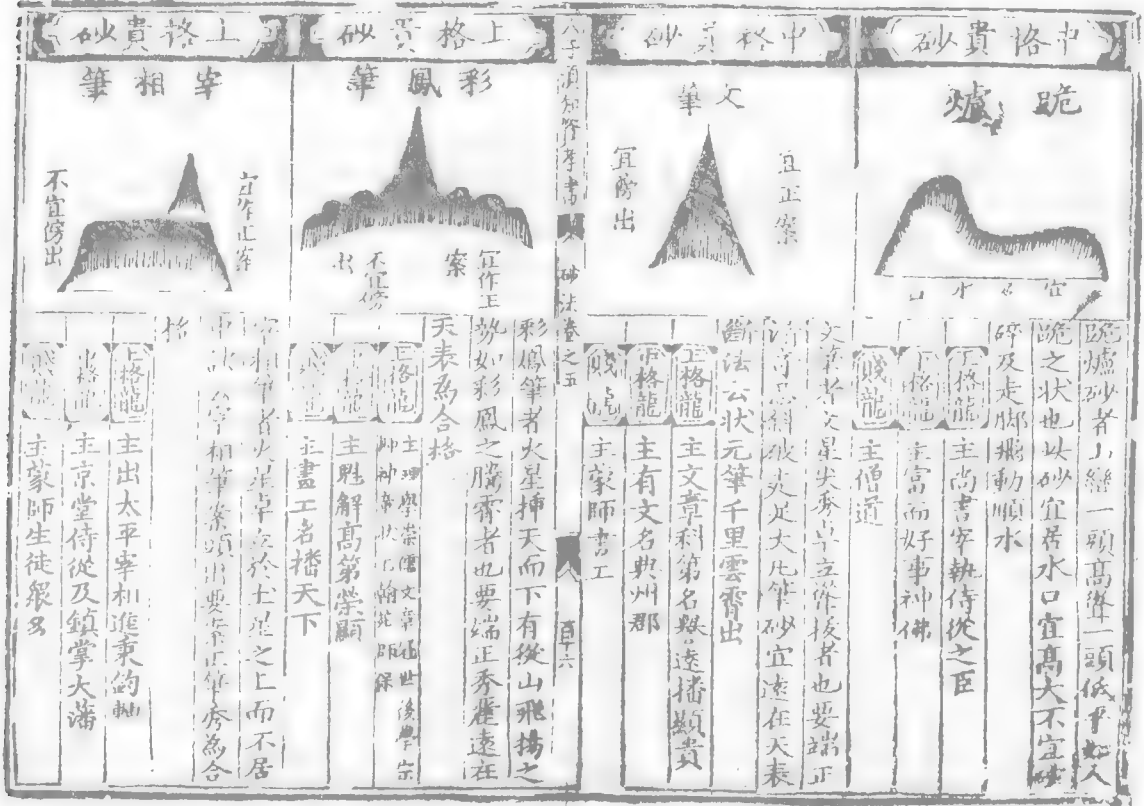 中格貴砂
跪爐
宜居水口
跪爐砂者山巒一頭高聳一頭低平如人
跪之状也此砂宜居水口宜髙大不宜
碎及走脚飛動順水
上格龍 主尚書宰執侍從之臣
中格龍 主富而好事神佛
賤龍 主僧道
中格貴砂
文筆
宜正案
宜傍出
文筆者文星尖秀卓立
者也要端正
斜破尖足大凡筆砂宜逺在天表
斷法云状元筆千里雲霄出
上格龍 主文章科第名譽逺播顯貴
中格龍 主有文名典州郡
賤龍 主蒙師畫工
人子須知資孝書
砂法卷之五
百十六
上格貴砂
彩鳳筆
宜作正
案
不宜傍
出
彩鳳筆者火星揷天而下有從山飛揚之
勢如彩鳳之騰霄者也要端正秀麗逺在
天表爲合格
上格龍 主理學崇儒文章蓋世後學宗
師神童状元翰苑師保
中格龍 主魁解髙第榮顯
賤龍 主畫工名播天下
上格貴砂
宰相筆
宜作正案
不宜傍出
宰相筆者火星卓立於土星之上而不居
中
宰相筆案頭出要案正筆秀爲合
格
上格龍 主出太平宰相進秉鈞軸
中格龍 主京堂侍從及鎮掌大藩
賤龍 主蒙師生徒衆多